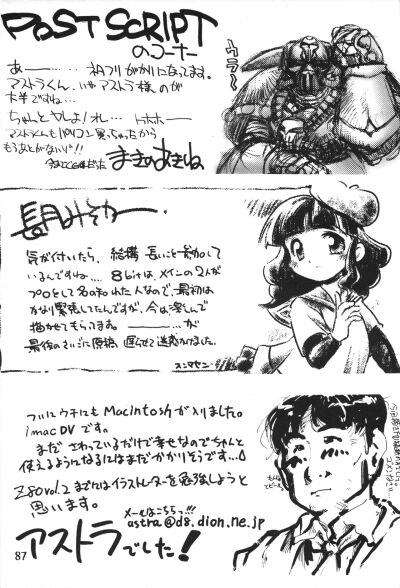 POST SCRIPT
のコーナー
あー………、ネコフリがかりになってます。
マストラくん、いやアストラ様のが
大半ですね…
ちゃんとヤレよ！オレ…トホホー
マストラくんもパソコン買っちゃったから
もうあとがないゾ!!
まきのあきね
ウララ〜
長月みそか
気が付いたら、結構 長いこと参加して
いるんですね… 8bitは、メインの2人が
プロとして名の知れた人なので、最初は
かなり緊張してたんですが、今は楽しんで
描かせてもらてます。————……が
最後のさいごに原稿 遅らせて迷惑かけました。
スンマセン
ついにウチにもMacintoshが入りました。
imac DV です。
まだ さわっているだけで幸せなのでちゃんと
使えるようになるにはまだかかりそうです…
Z80 vol.2 までにはイラストレーターを勉強しようと
思います。
メールはこちらっ!!!
astra@d8.dion.ne.jp
アストラでした！
87